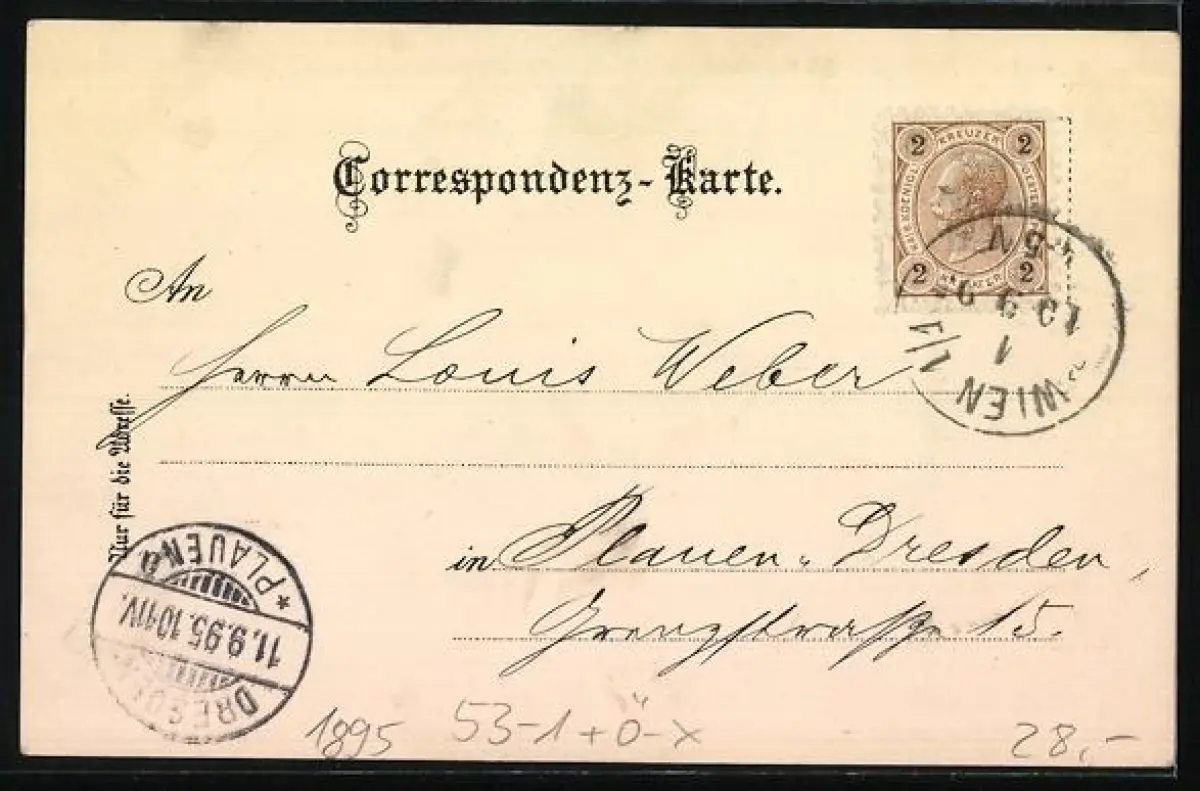 Correspondenz-Karte.
2 KREUZER 2
2 KREUZER 2
An
Herrn Louis Weber
in Plauen-Dresden,
Grenzstrasse 15.
Nur für die Adresse.
WIEN 1/1
10 9 9
1
5 N
* PLAUEN
11.9.95.10-11V.
DRESDEN
1895 53-1+Ö-X 28,-